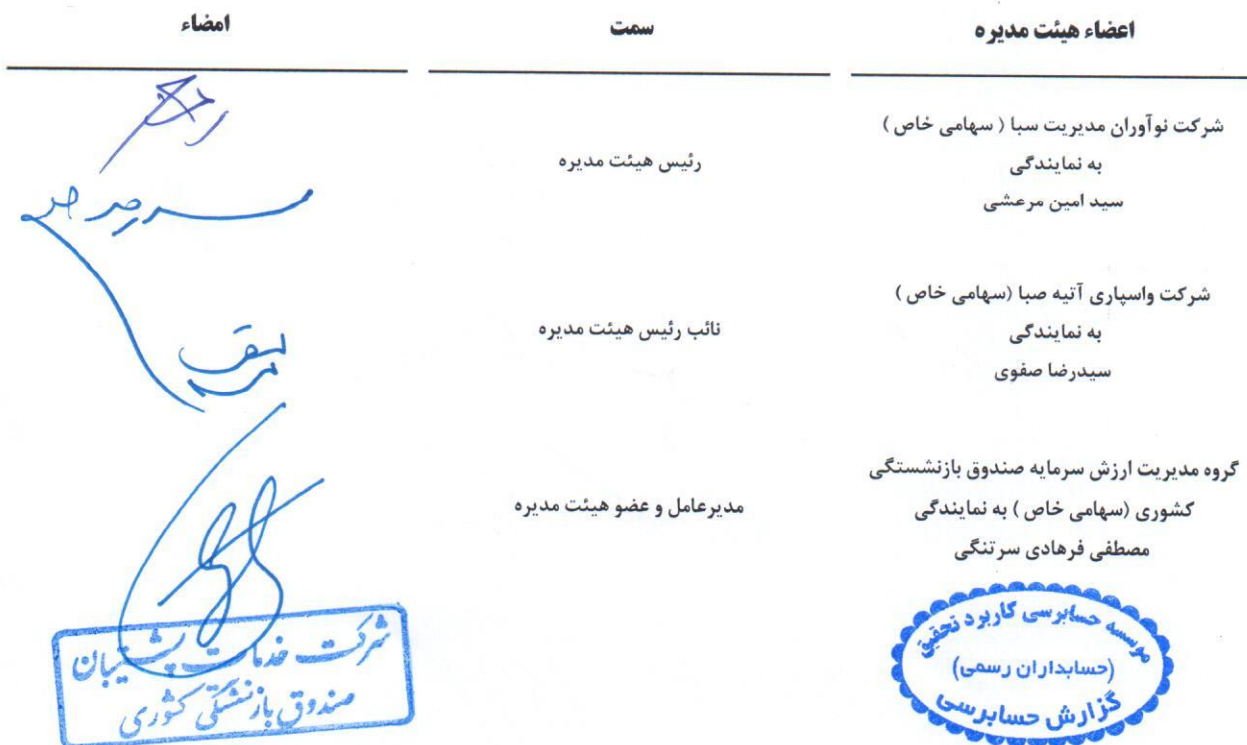 اعضاء هیئت مدیره
سمت
امضاء
شرکت نوآوران مدیریت سبا ( سهامی خاص )
به نمایندگی
سید امین مرعشی
رئیس هیئت مدیره
شرکت واسپاری آتیه صبا (سهامی خاص )
به نمایندگی
سیدرضا صفوی
نائب رئیس هیئت مدیره
گروه مدیریت ارزش سرمایه صندوق بازنشستگی
کشوری (سهامی خاص ) به نمایندگی
مصطفی فرهادی سرتنگی
مدیرعامل و عضو هیئت مدیره
موسسه حسابرسی کاربرد تحقیق
(حسابداران رسمی)
گزارش حسابرسی
شرکت خدمات پشتیبان
صندوق بازنشستگی کشوری